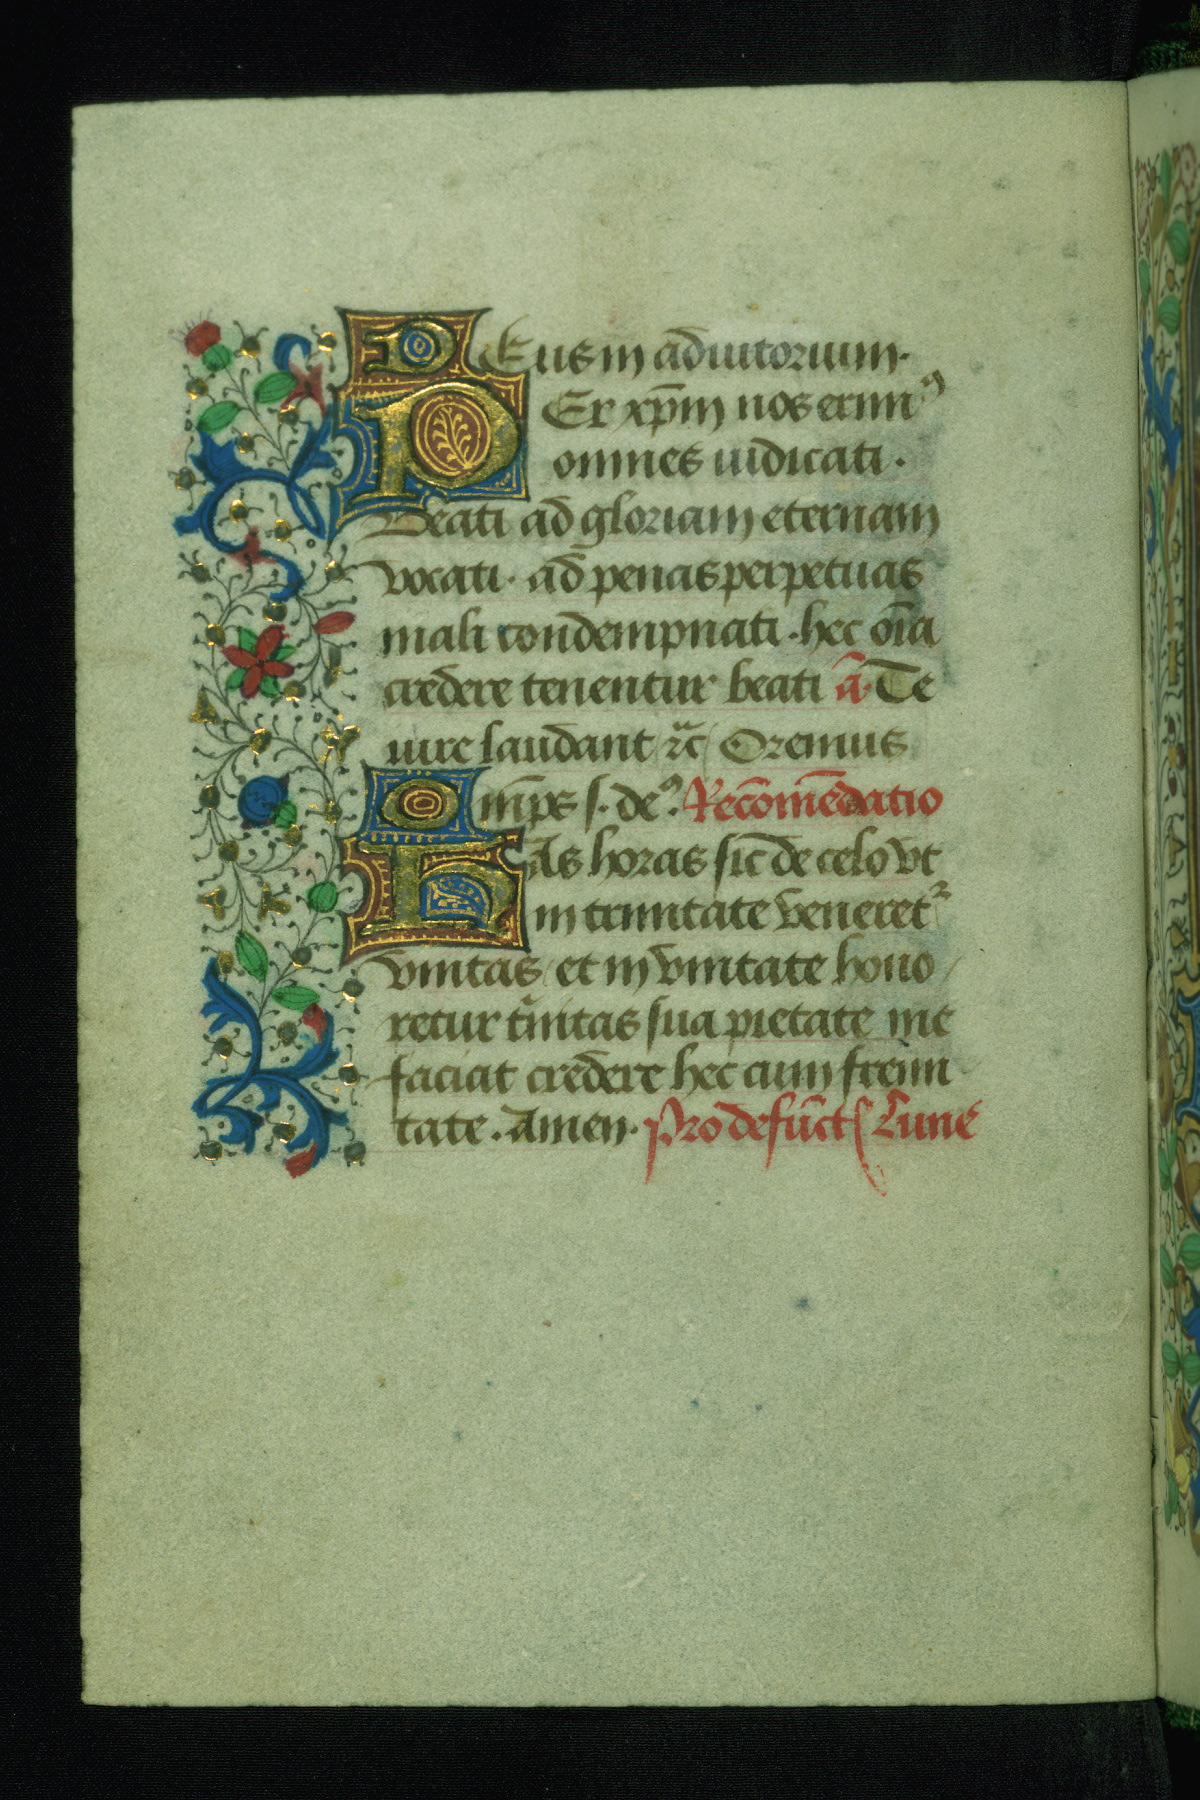 Deus in adiutorium.
Per xp̄m nos erimꝰ
omnes iudicati.
Beati ad gloriam eternam
vocati. ad penas perpetuas
mali condempnati. hec oīa
credere tenentur beati a͞. Te
iure laudant ⁊c Oremus
Om̄ps s. deꝰ. Recōmēdatio
Has horas sic de celo vt
in trinitate veneretᷣ
vnitas / et in vnitate hono /
retur t̾nitas sua pietate me
faciat credere hec cum frēnī
tate. Amen. Pro defūctꝭ